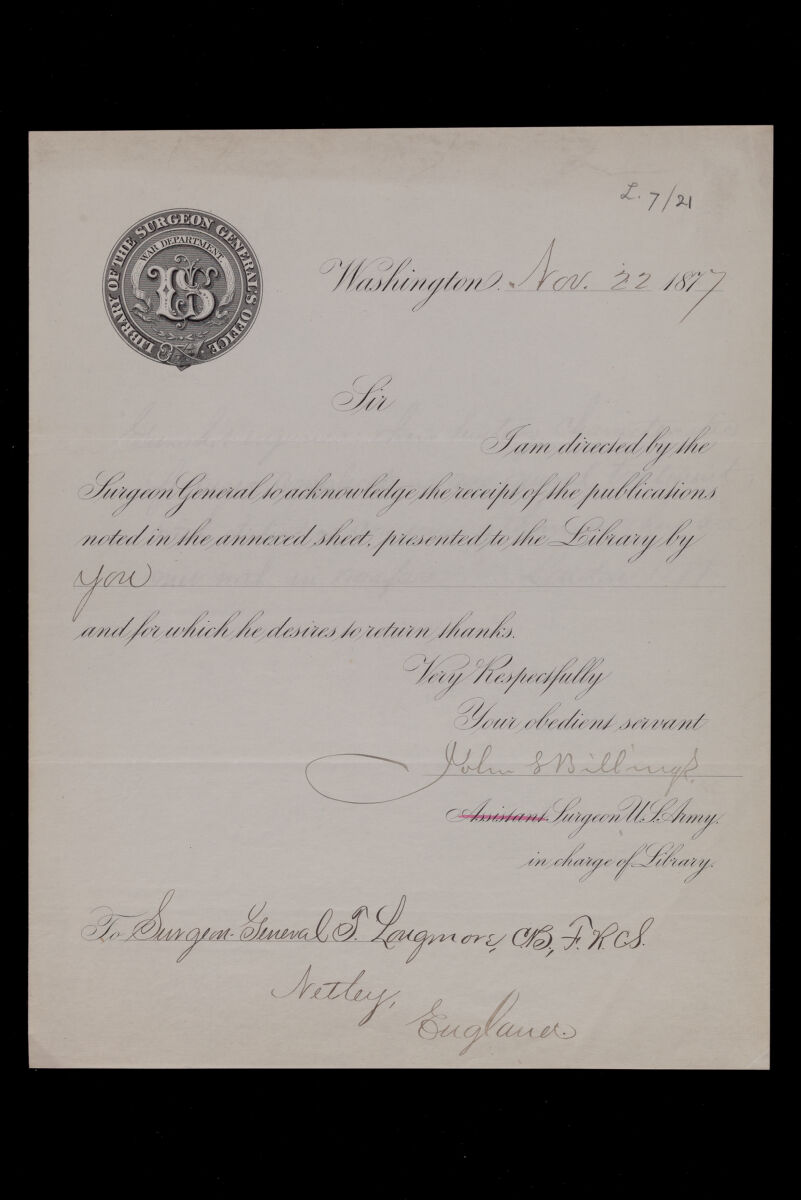 L. 7/21
LIBRARY OF THE SURGEON GENERAL'S OFFICE.
WAR DEPARTMENT
LS
Washington. Nov. 22 1877
Sir
I am directed by the
Surgeon General to acknowledge the receipt of the publications
noted in the annexed sheet, presented to the Library by
you
and for which he desires to return thanks.
Very Respectfully
Your obedient servant
John S Billings.
Assistant Surgeon U.S. Army.
in charge of Library.
To Surgeon-General T. Longmore, CB., F.R.C.S.
Netley,
England.